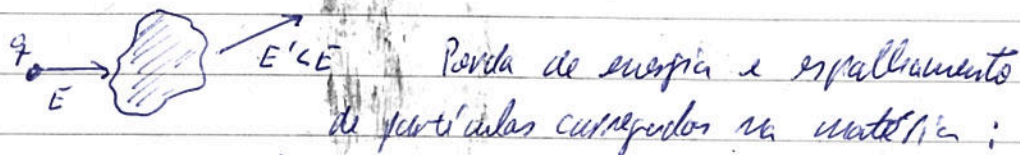 q
E
E' < E
Perda de energia e espalhamento
de partículas carregadas na matéria :